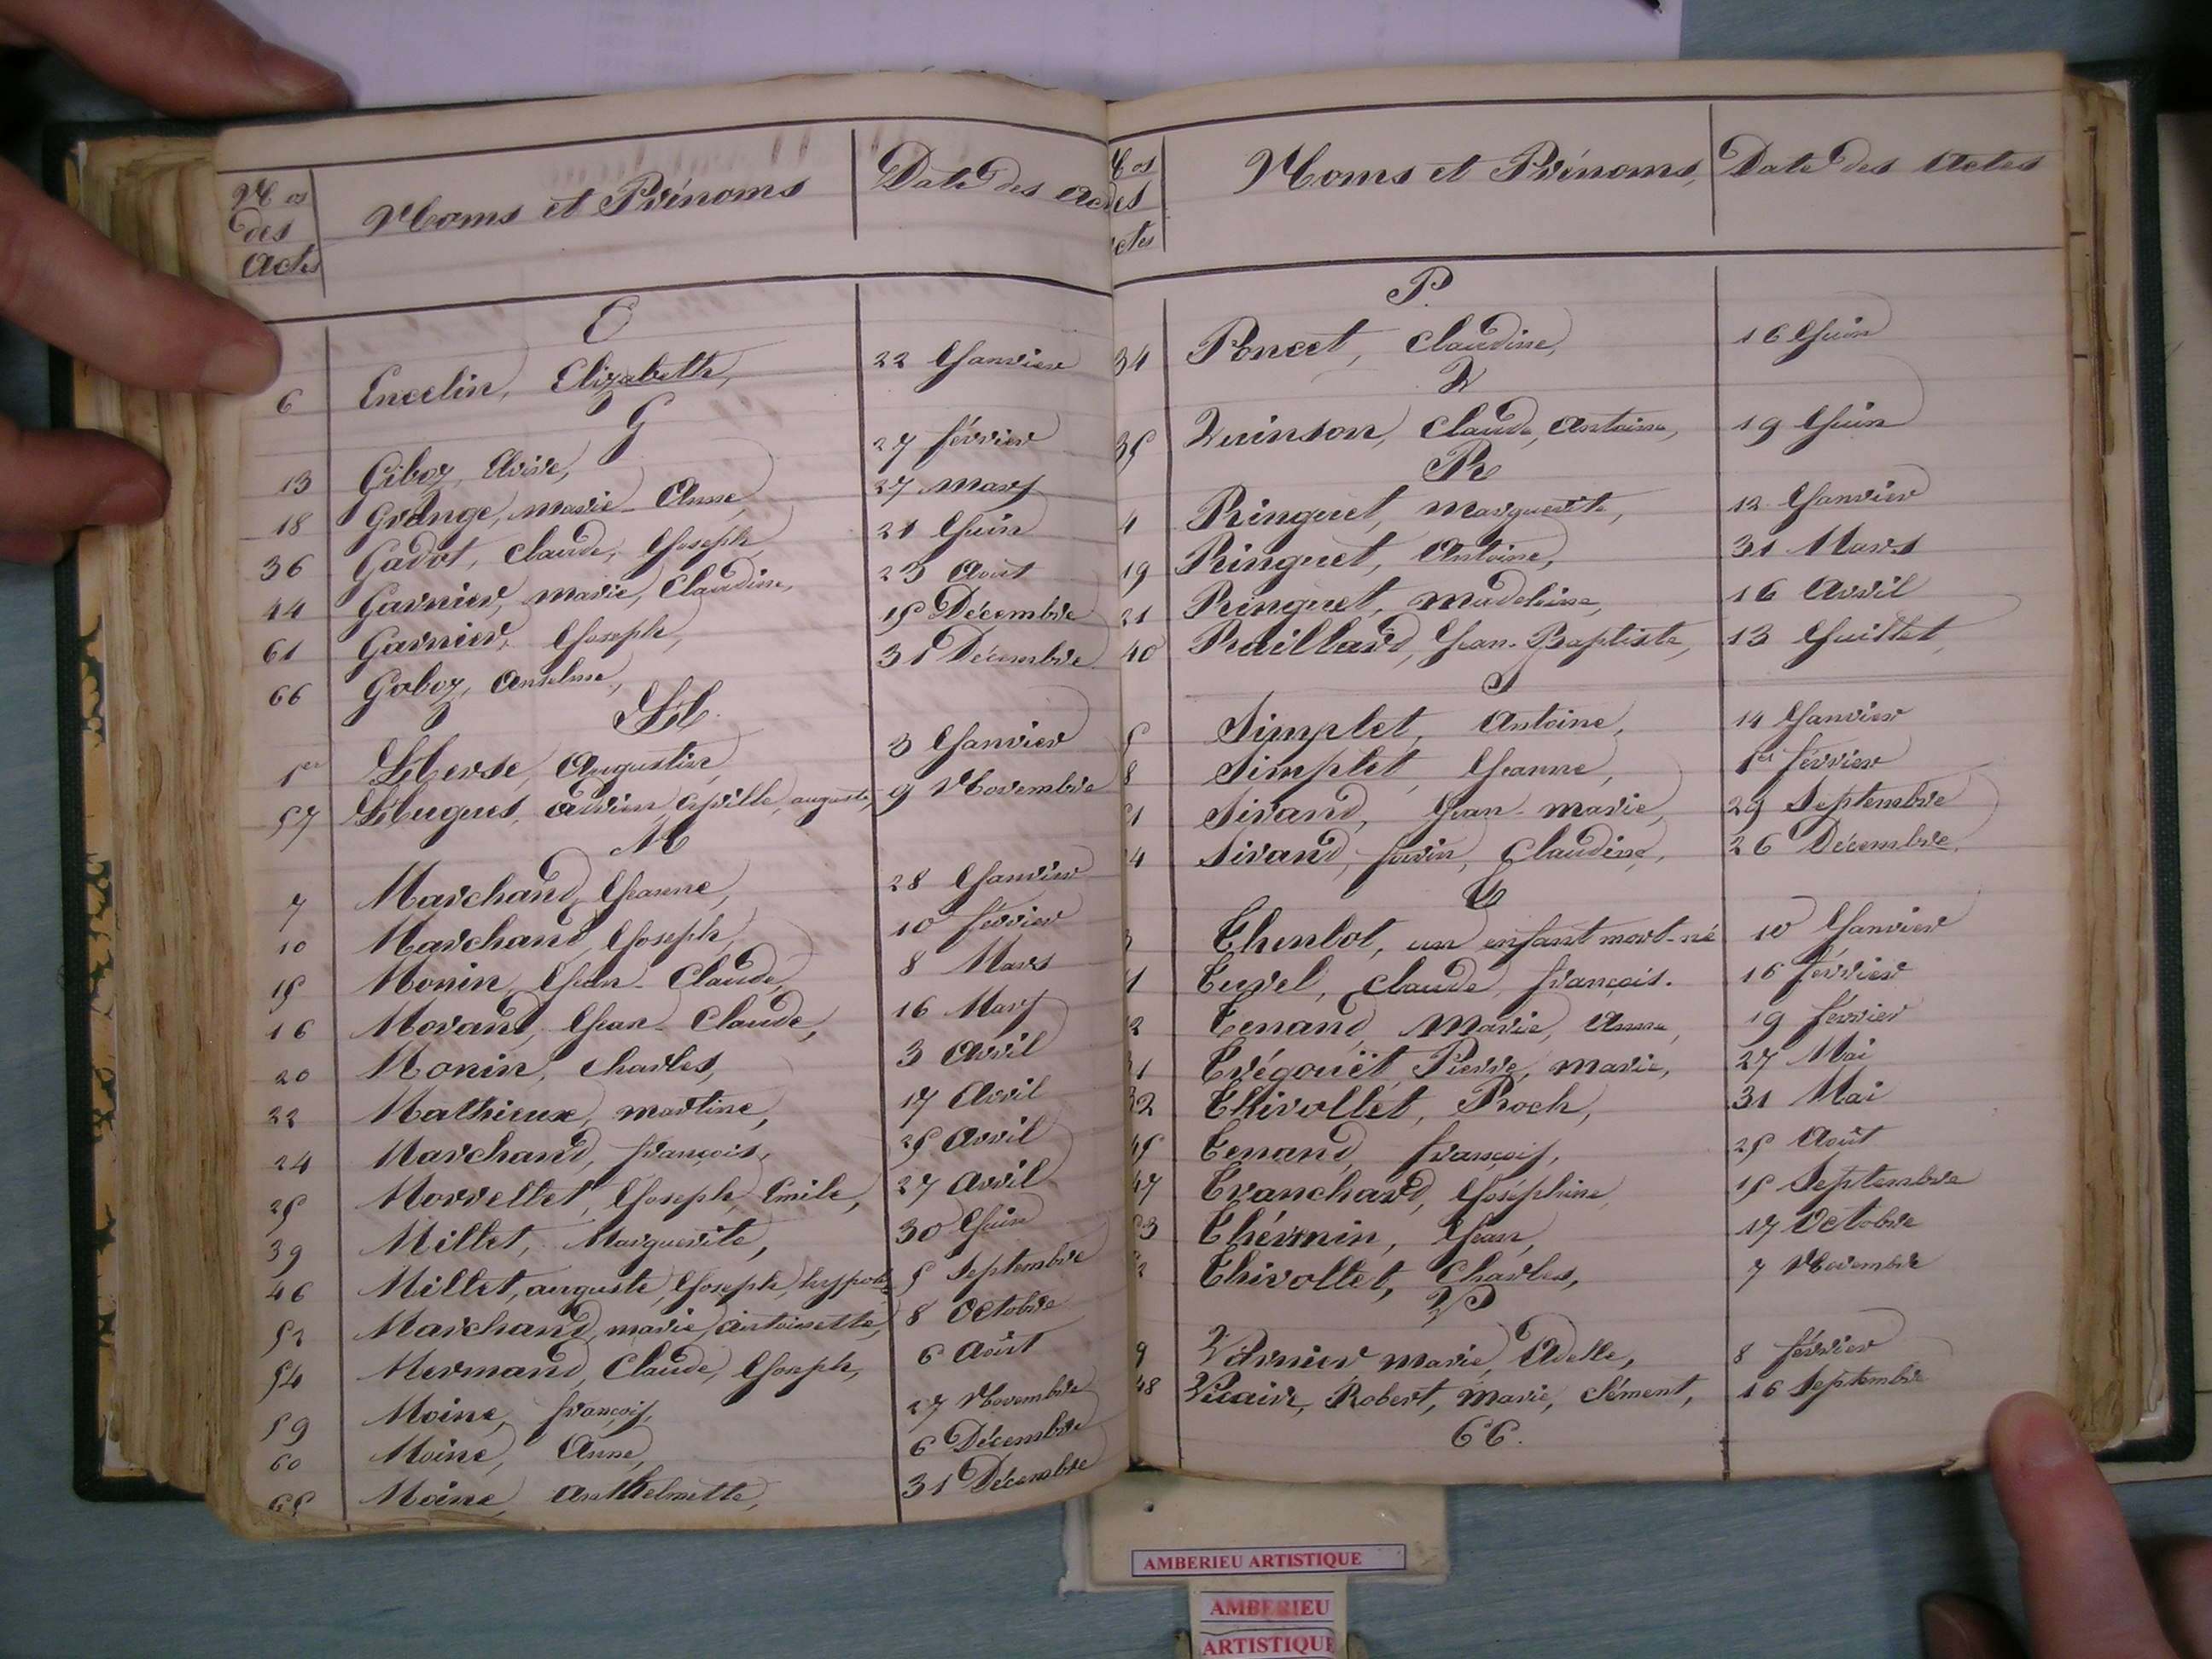 Nos des Actes Noms et Prénoms Date des Ac
E
6 Encelin, Elizabeth, 22 Janvier
G
13 Giboz, Elvire, 27 février
18 Grange, marie-Anne, 27 Mars
36 Gadot, Claude, Joseph, 21 Juin
44 Garnier, marie, Claudine, 23 Août
61 Garnier, Joseph, 15 Décembre
66 Goboz, Anselme, 31 Décembre
H
1er Herse, Augustin, 3 Janvier
57 Hugues, auguste, 9 Novembre
M
7 Marchand, Jeanne, 28 Janvier
10 Marchand, Joseph, 10 février
15 Monin, Jean-Claude, 8 Mars
16 Morand, Jean-Claude, 16 Mars
20 Monin, Charles, 3 Avril
22 Mathieux, martine, 17 Avril
24 Marchand, françois, 25 Avril
25 Morvellet, Joseph, Emile, 27 Avril
39 Millet, Marguerite, 30 Juin
46 Millet, auguste, Joseph, hyppol 5 Septembre
52 Marchand, marie, antoinette, 8 Octobre
54 Mermand, Claude, Joseph, 6 Août
59 Moine, françois, 27 Novembre
60 Moine, Anne, 6 Décembre
65 Moine, Anthelmette, 31 Décembre
os es ctes Noms et Prénoms, Date des Actes
P.
34 Poncet, Claudine, 16 Juin
Q
35 Quinson, Claude, Antoine, 19 Juin
R
4 Ringuet, Marguerite, 12 Janvier
19 Ringuet, Antoine, 31 Mars
21 Ringuet, Madeleine, 16 Avril
40 Ruillard, Jean-Baptiste, 13 Juillet
S
5 Simplet, Antoine, 14 Janvier
8 Simplet, Jeanne, 1er février
1 Sirand, Jean-marie, 29 Septembre
4 Sirand, Claudine, 26 Décembre
T
Thenlot, un enfant mort-né 10 Janvier
1 Turel, Claude, françois. 16 février
2 Tenand, Marie, Anna, 19 février
31 Trégouët, Pierre, marie, 27 Mai
32 Thivollet, Roch, 31 Mai
45 Tenand, françois, 25 Août
47 Tranchard, Joséphine, 15 Septembre
53 Thévenin, Jean, 17 Octobre
Thivollet, Charles, 7 Novembre
V
9 Varnier marie, Adelle, 8 février
48 Vicaire, Robert, Marie, Clément, 16 Septembre
66.
AMBERIEU ARTISTIQUE
AMBERIEU
ARTISTIQUE